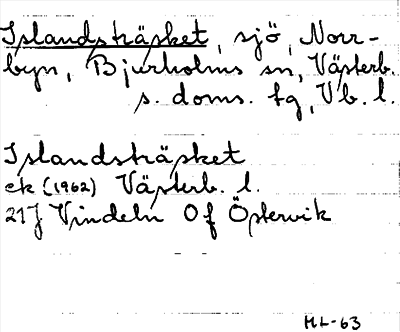 Islandsträsket, sjö, Norr-
byn, Bjurholms sn, Västerb.
s. doms. tg, Vb. l.
Islandsträsket
ek (1962) Västerb. l.
21J Vindeln Of Östervik
ML-63